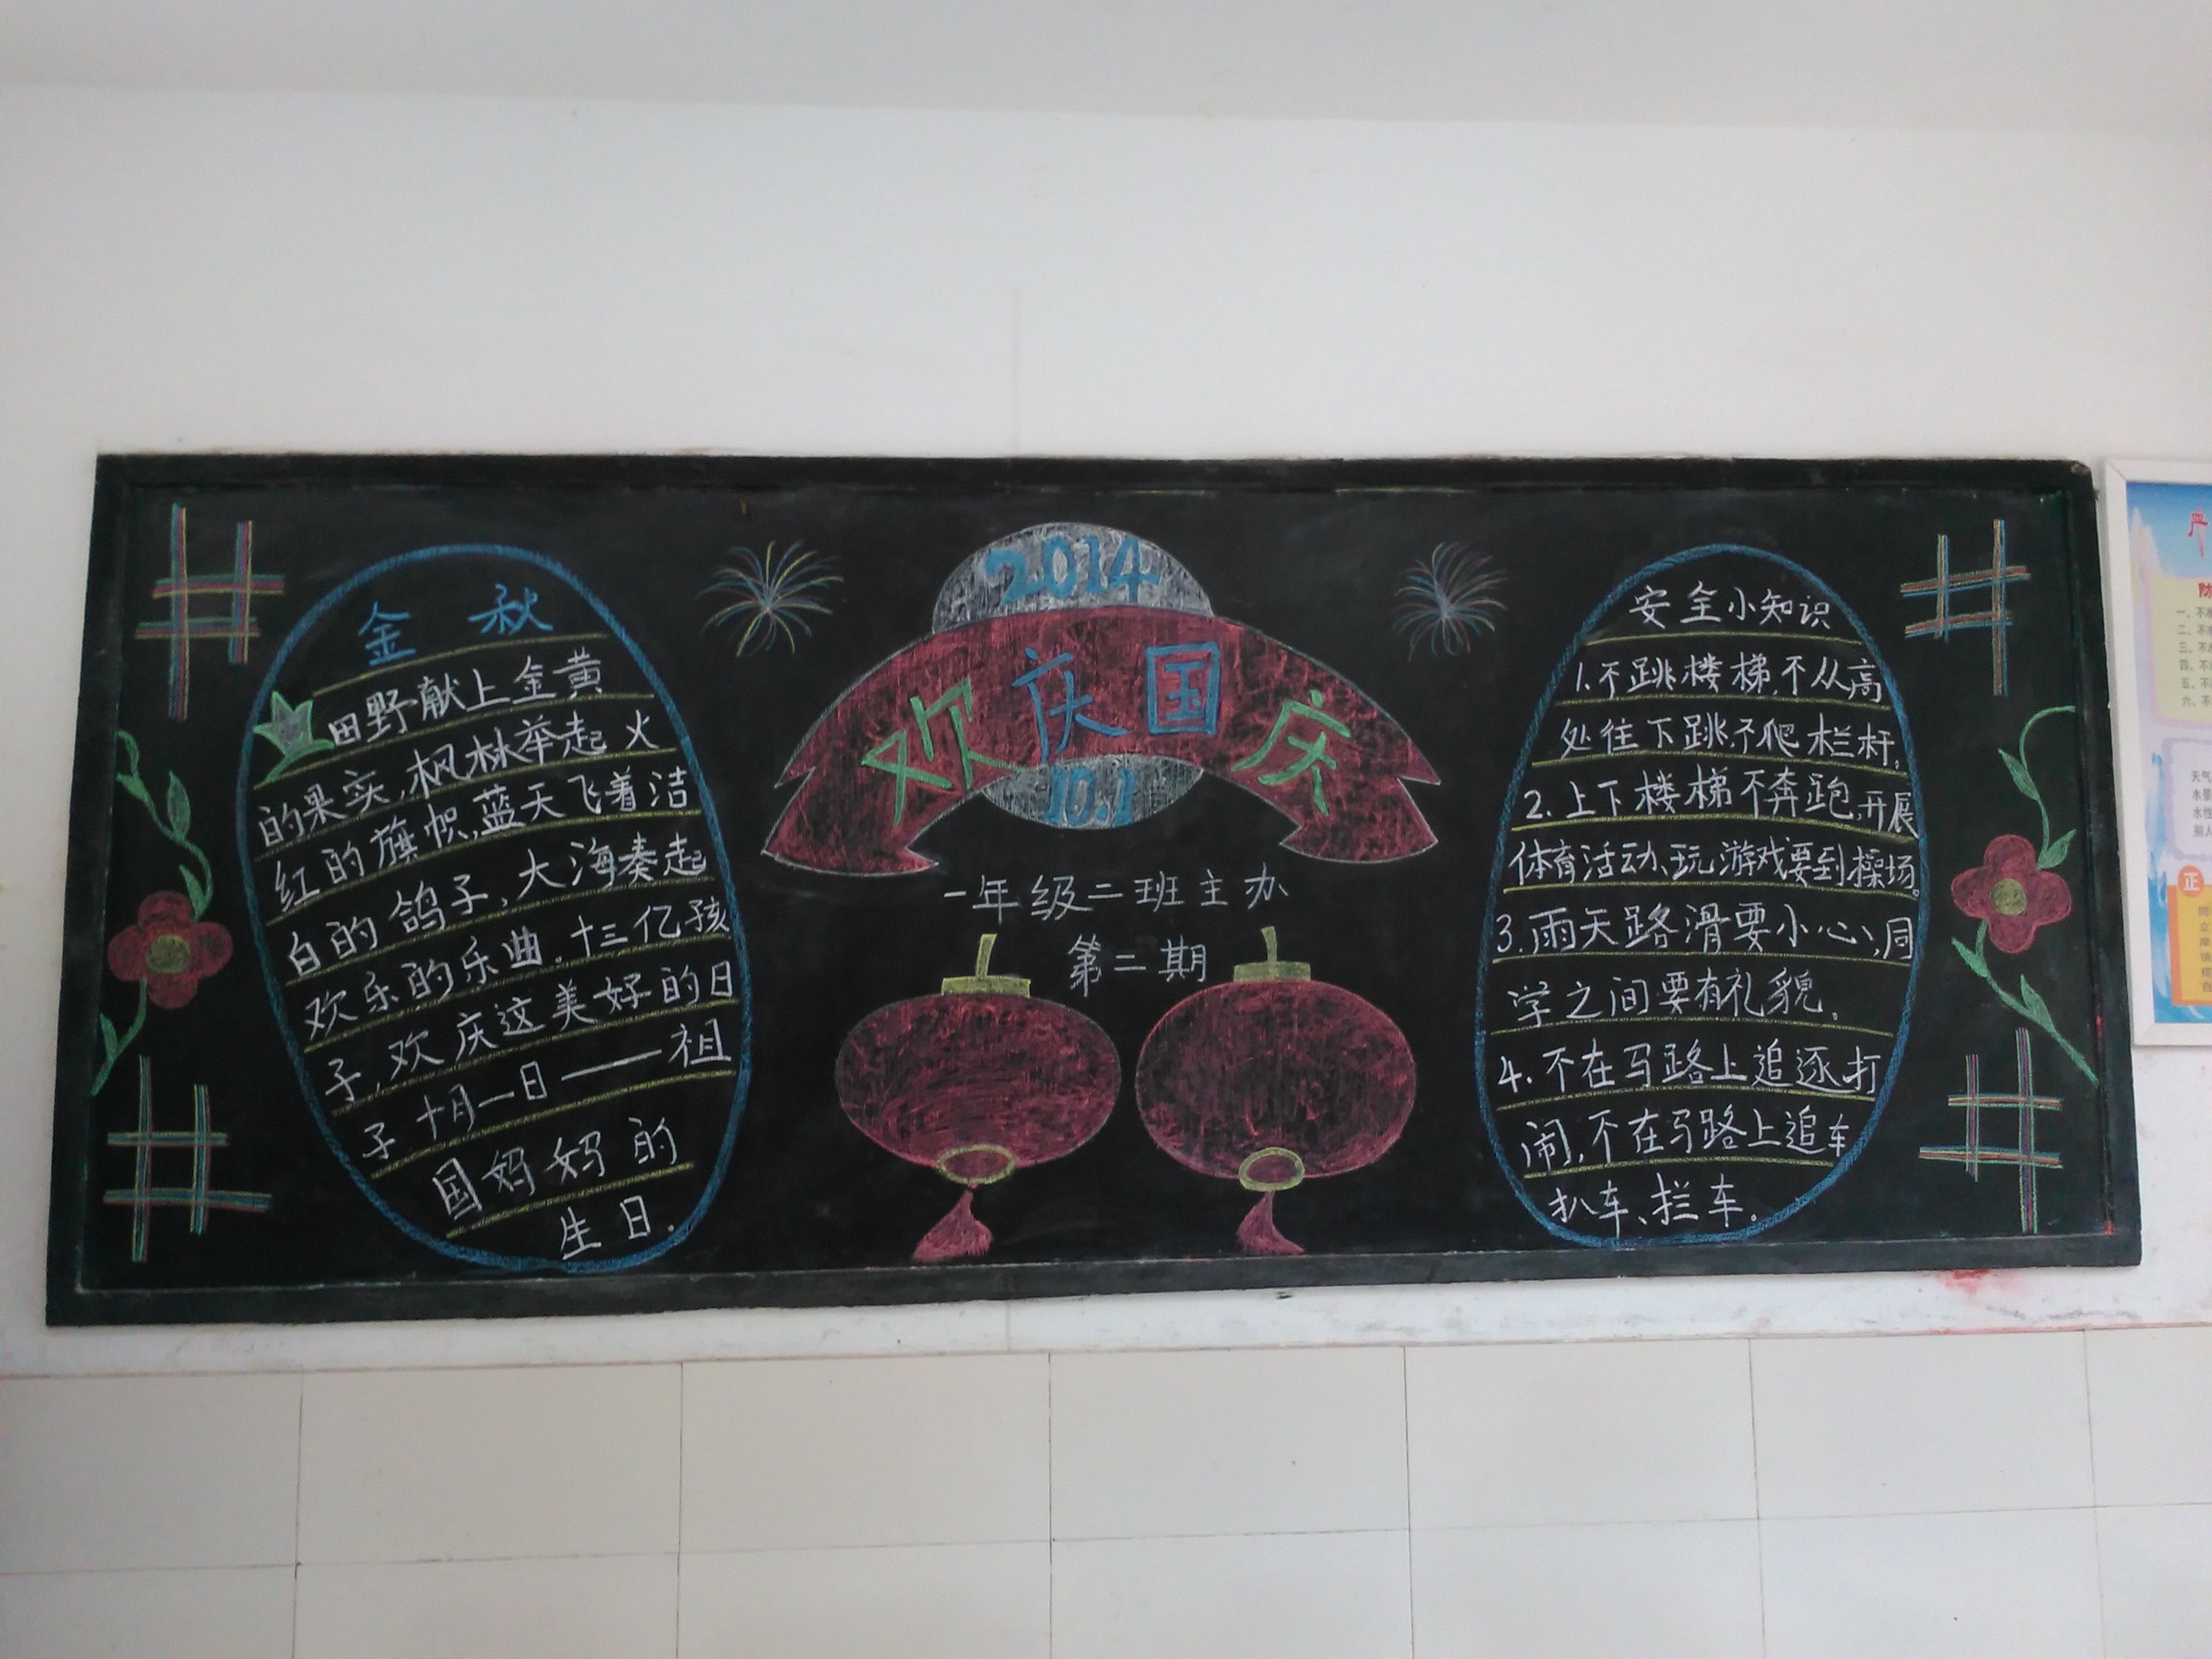 金秋
田野献上金黄
的果实,枫林举起火
红的旗帜,蓝天飞着洁
白的鸽子,大海奏起
欢乐的乐曲。十三亿孩
子,欢庆这美好的日
子.十月一日——祖
国妈妈的
生日.
2014
欢庆国庆
10.1
一年级二班主办
第二期
安全小知识
1.不跳楼梯,不从高
处往下跳,不爬栏杆。
2.上下楼梯不奔跑,开展
体育活动、玩游戏要到操场。
3.雨天路滑要小心、同
学之间要有礼貌。
4.不在马路上追逐打
闹,不在马路上追车
扒车、拦车。
严
正